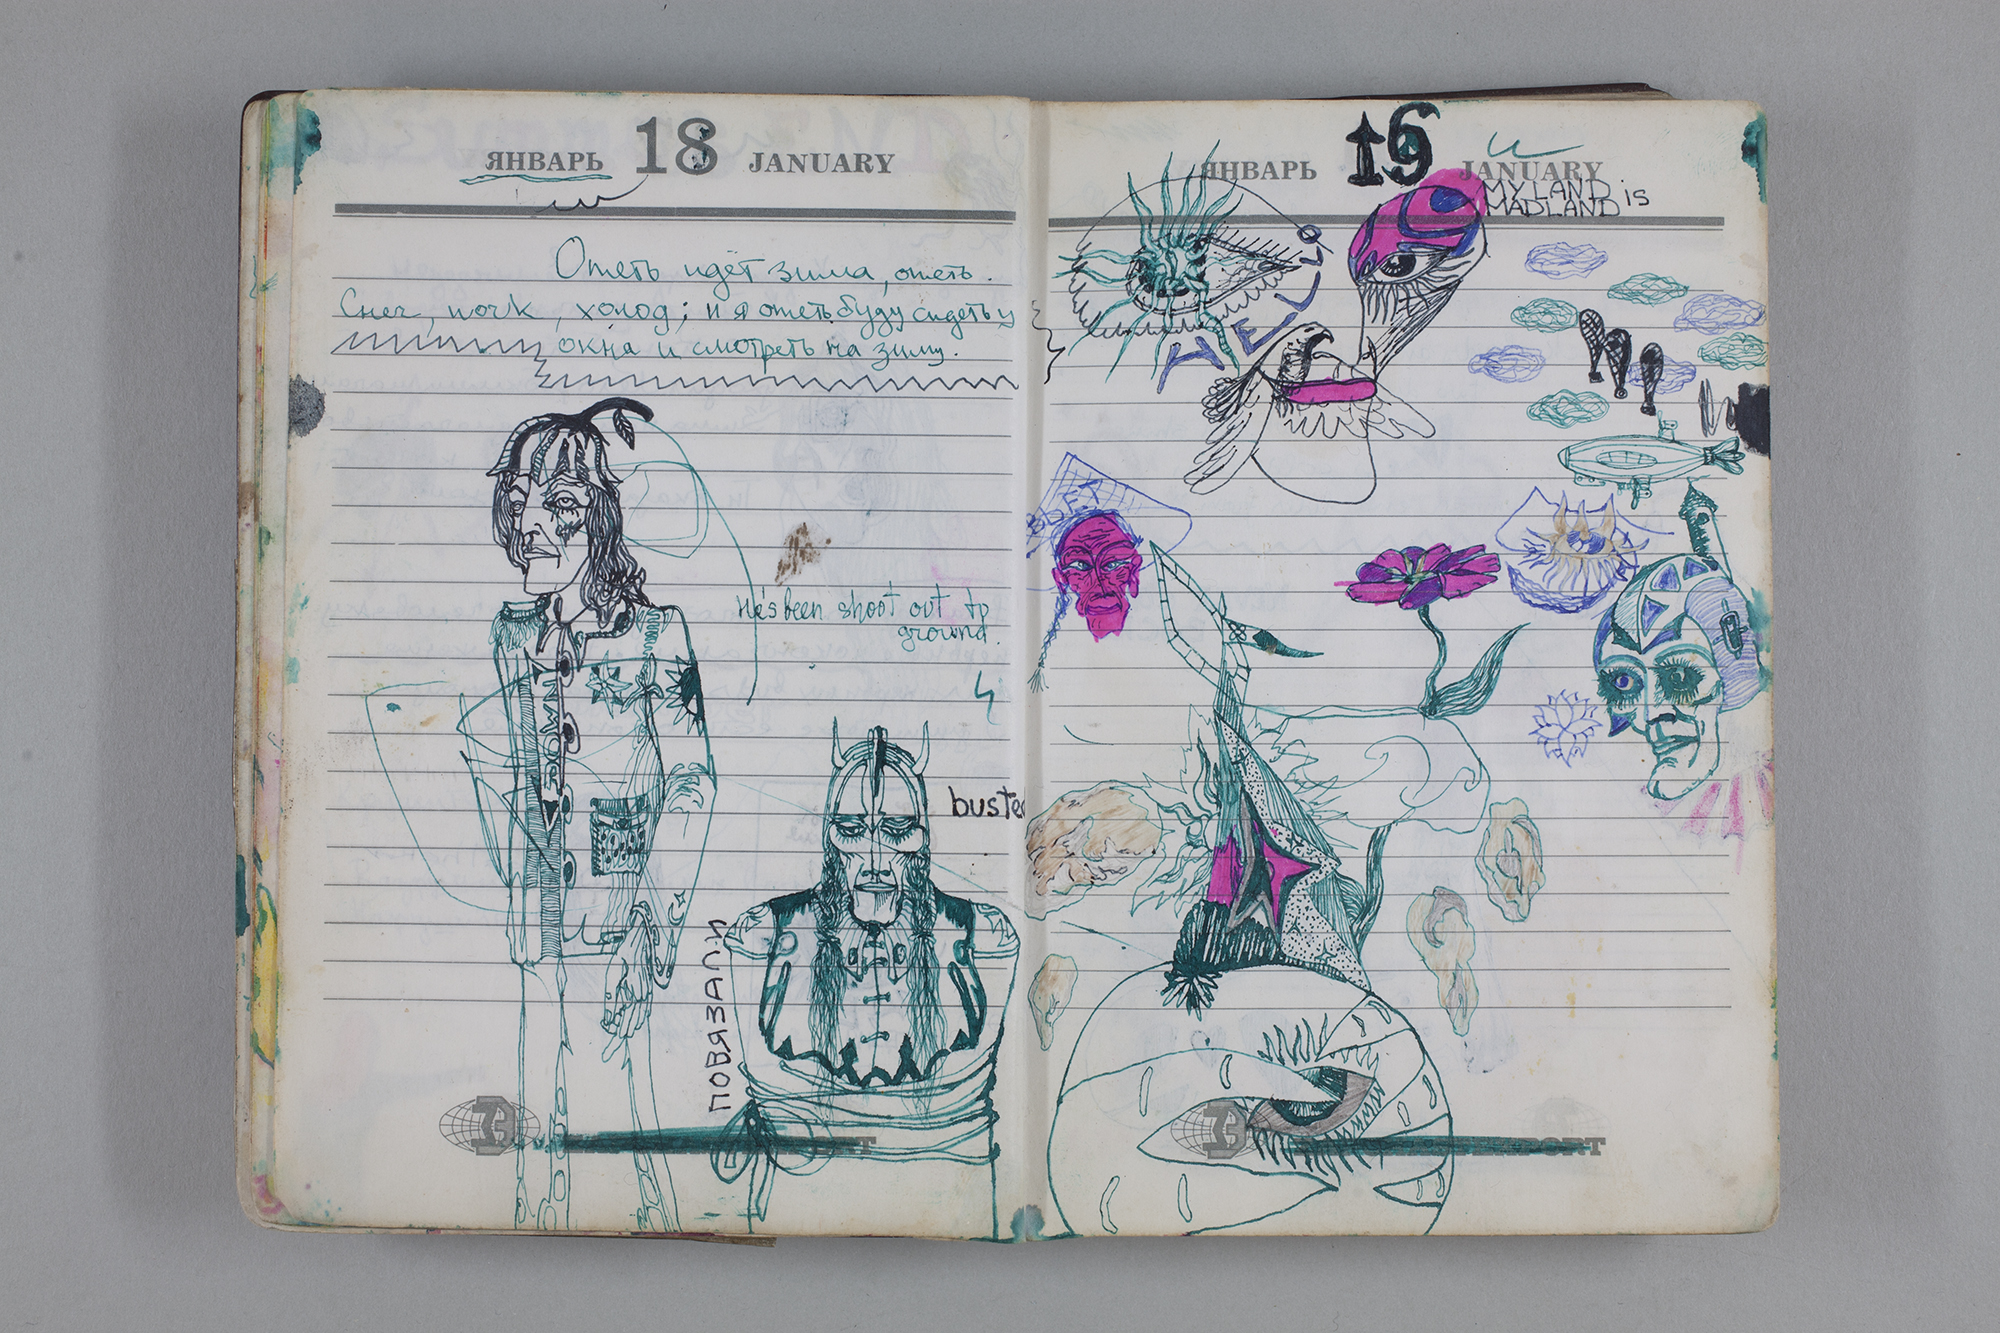 ЯНВАРЬ 18 JANUARY
Опеть идёт зима, опеть.
Снег, ночь, холод; и я опеть буду сидеть у
окна и смотреть на зиму.
He's been shoot out to
ground.
DOWN
busted
ПОВЯЗАЛИ
ЯНВАРЬ 19 JANUARY
MY LAND is
MADLAND
HELL